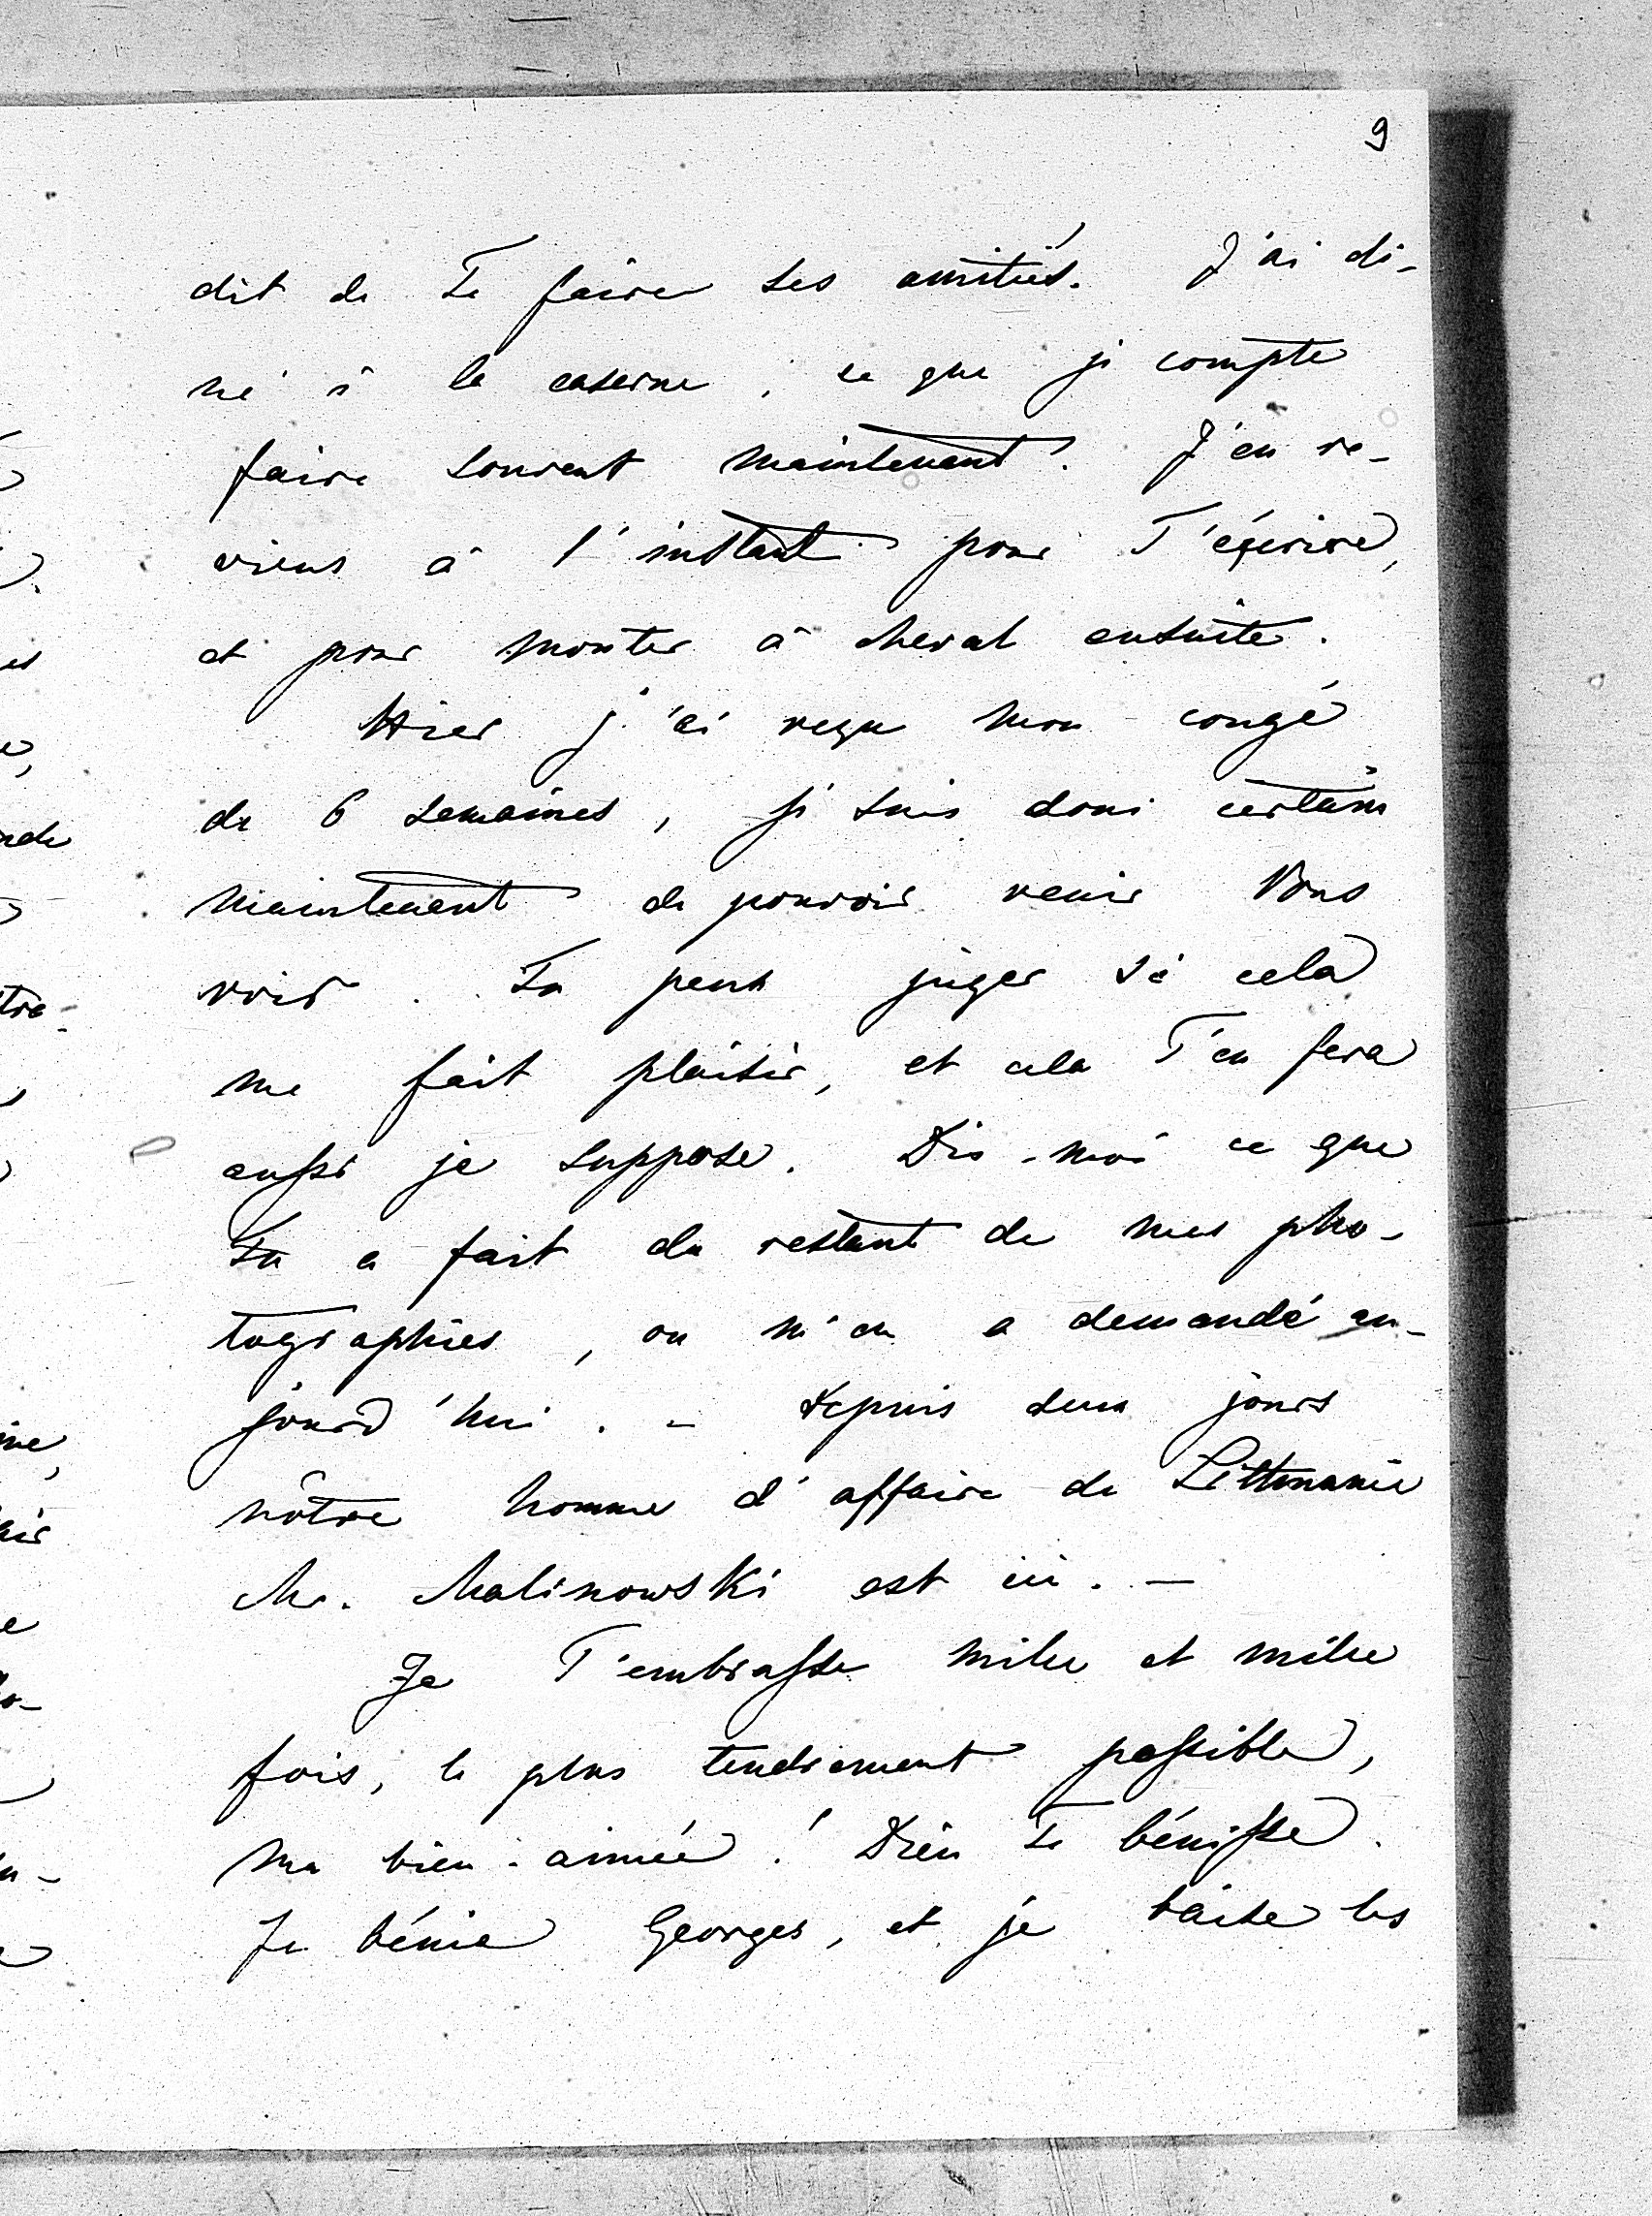 9
dit de Te faire ses amitiés. J'ai di-
né à la caserne, ce que je compte
faire souvent maintenant. J'en re-
viens à l'instant pour T'écrire,
et pour monter à cheval ensuite.
Hier j'ai reçu mon congé
de 6 semaines, je suis donc certain
maintenant de pouvoir venir Vous
voir. Tu peux juger si cela
me fait plaisir, et cela T'en fera
aussi je suppose. Dis-moi ce que
Tu a fait du restant de mes pho-
tographies, on m'en a demandé au-
jourd'hui. - Depuis deux jours
nôtre homme d'affaire de Littuanie
Mr. Malinowski est ici. —
Je T'embrasse mille et mille
fois, le plus tendrement possible,
ma bien-aimée! Dieu Te bénisse.
Je bénie Georges, et je baise les